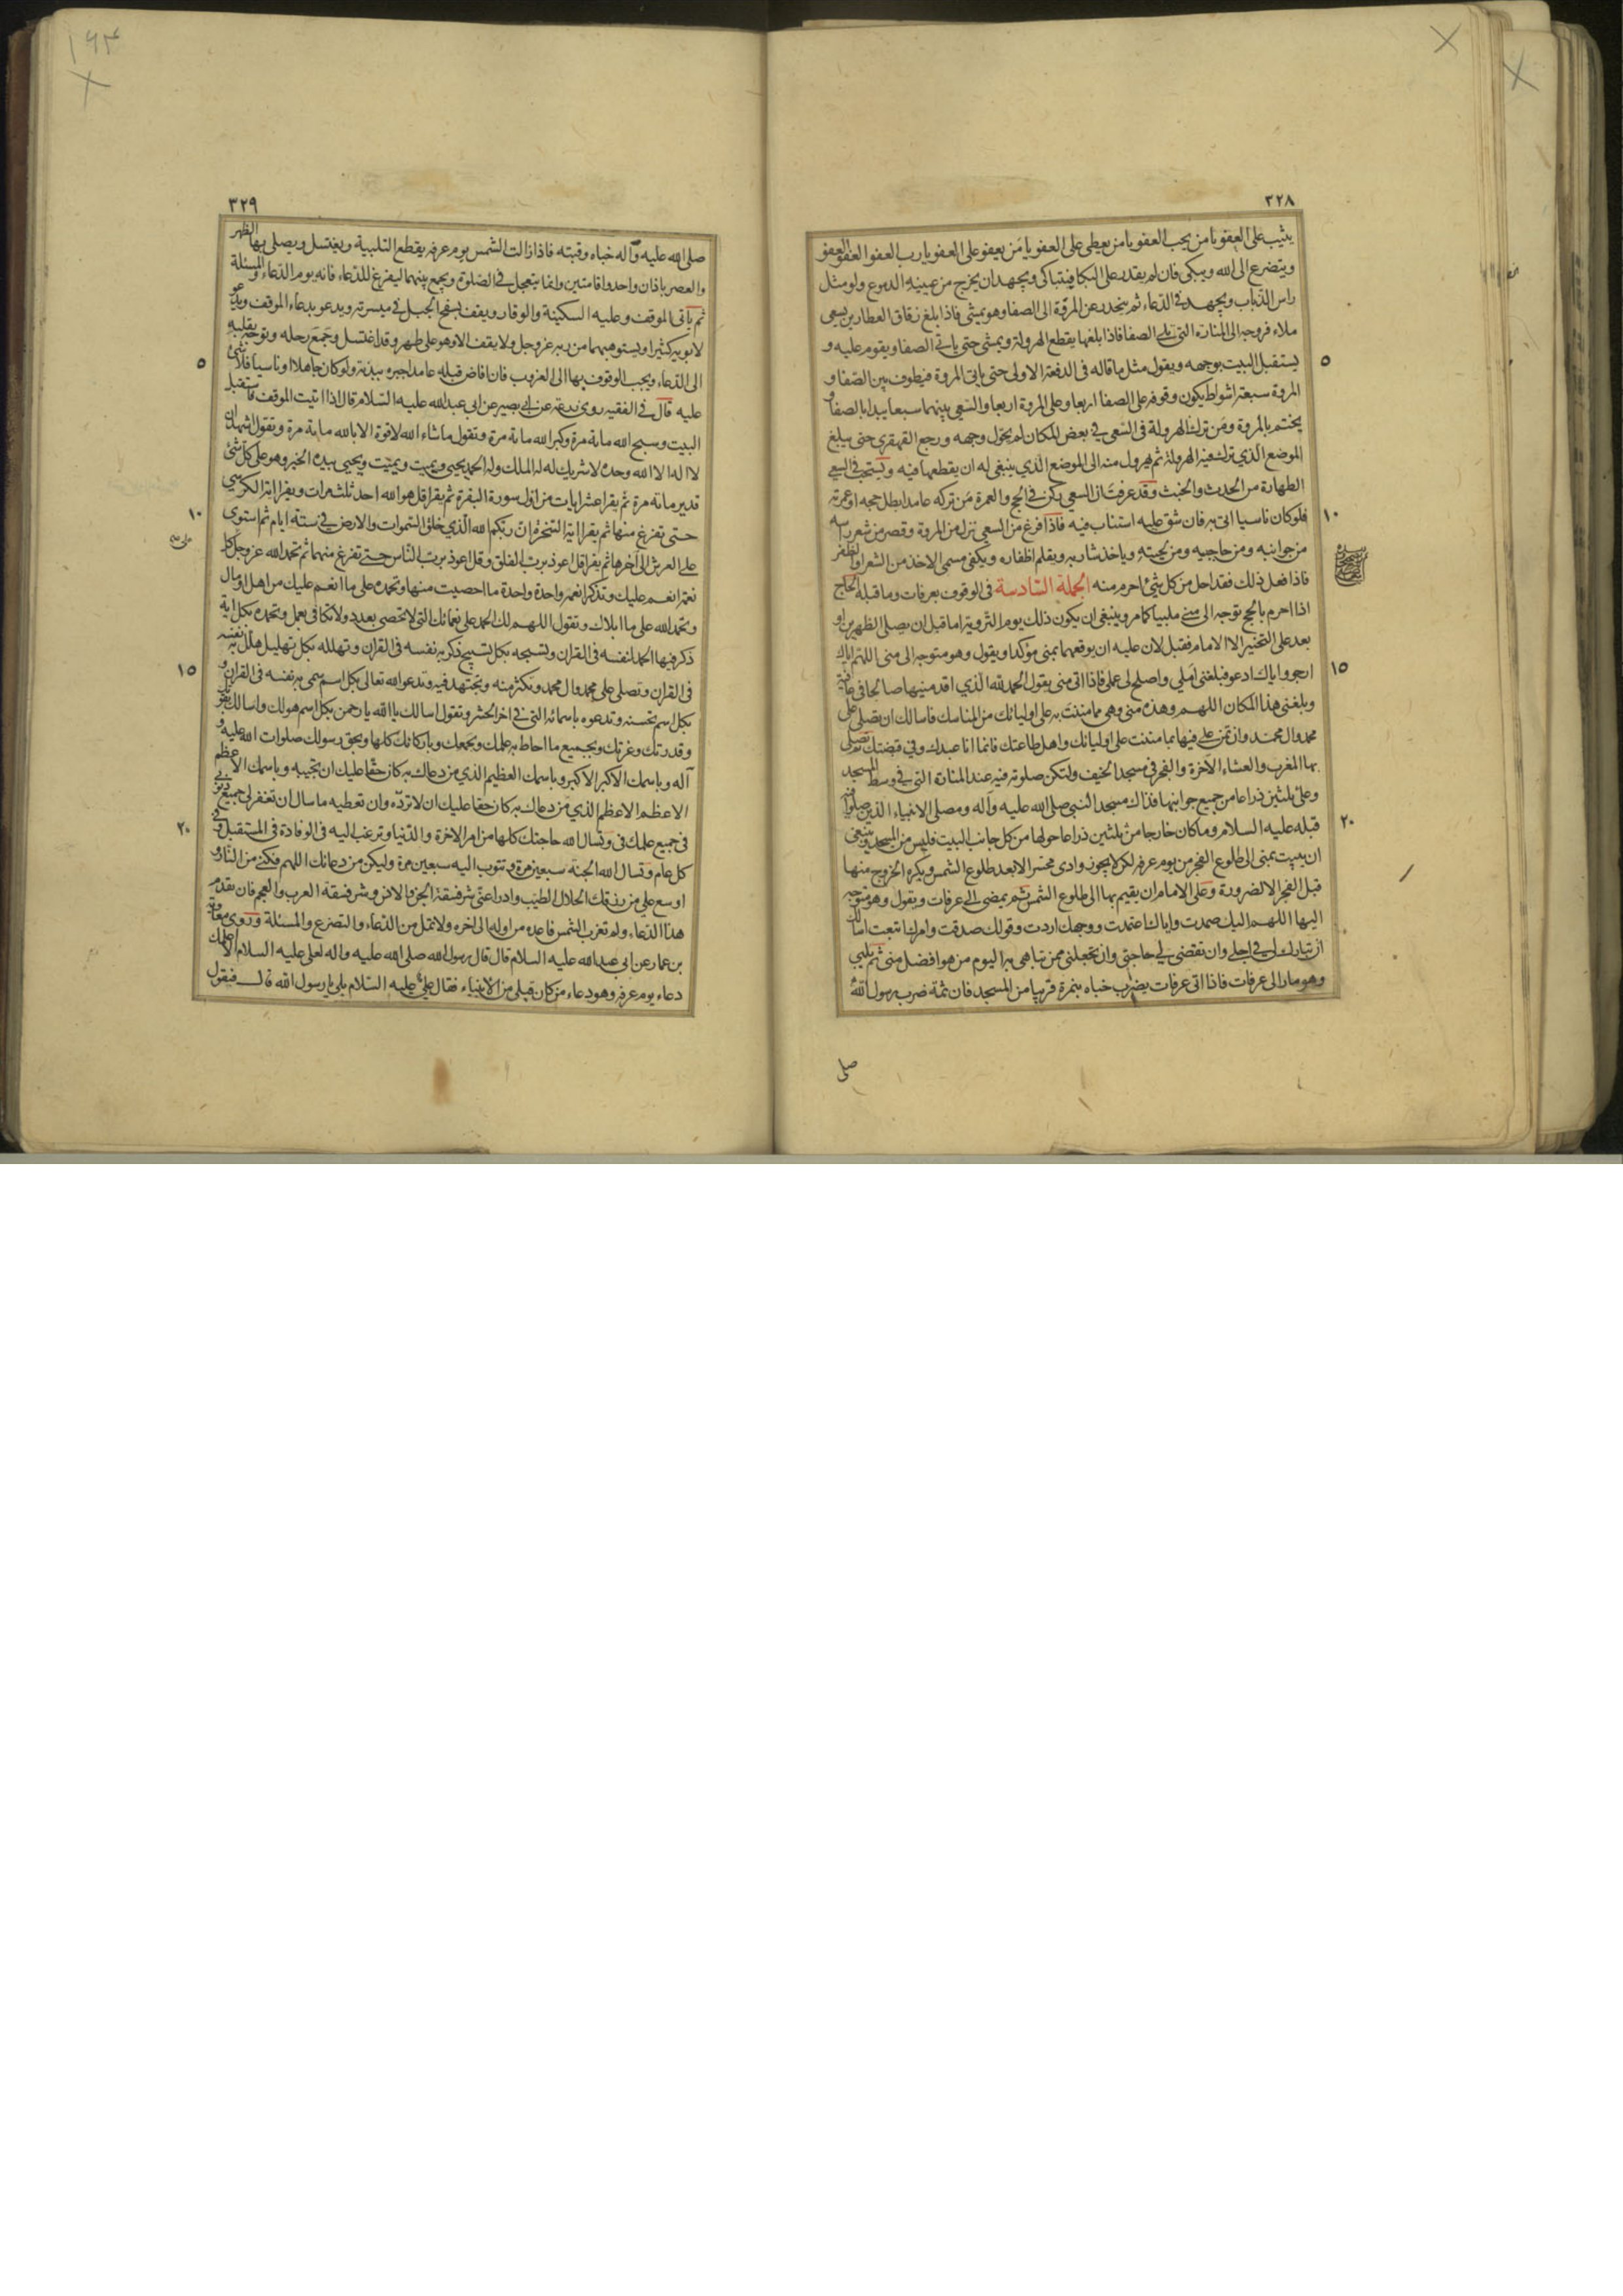 ٣٢٨
يثيب على العفو يا من يحب العفو يا من يعطى على العفو يا من يعفو على العفو يا رب العفو العفو العفو
ويتضرع الى الله ويبكى فان لم يقدر على البكا فيتباكى ويجهد ان يخرج من عينيه الدموع ولو مثل
راس الذباب ويجهد فى الدعاء ثم ينحدر عن المروة الى الصفا وهو يمشى فاذا بلغ زقاق العطارين يسعى
ملاء فروجه الى المنارة التى تلى الصفا فاذا بلغها يقطع الهرولة ويمشى حتى ياتى الصفا ويقوم عليه و
يستقبل البيت بوجهه ويقول مثل ما قاله فى الدفعة الاولى حتى ياتى المروة فيطوف بين الصفا و
٥
المروة سبعة اشواط يكون وقوفه على الصفا اربعا وعلى المروة اربعا والسعى بينهما سبعا يبدا بالصفا و
يختم بالمروة ومن ترك الهرولة فى السعى فى بعض المكان لم يحول وجهه ورجع القهقرى حتى يبلغ
الموضع الذي ترك فيه الهرولة ثم يهرول منه الى الموضع الذي ينبغى له ان يقطعها فيه ويستحب فى السعى
الطهارة من الحدث والخبث وقد عرفت ان السعى ركن فى الحج والعمرة من تركه عامدا بطل حجه او عمرته
فلو كان ناسيا اتى به فان شق عليه استناب فيه فاذا فرغ من السعى نزل من المروة وقصر من شعر راسه
١٠
من جوانبه ومن حاجبيه ومن لحيته وياخذ شاربه ويقلم اظفاره ويكفى مسمى الاخذ من الشعر او الظفر
فاذا فعل ذلك فقد احل من كل شئ احرم منه الجملة السادسة فى الوقوف بعرفات وما قبله الحاج
اذا احرم بالحج توجه الى منى ملبيا كما مر وينبغى ان يكون ذلك يوم التروية اما قبل ان يصلى الظهرين او
بعد على التخير الا الامام فقبل لان عليه ان يوقعهما بمنى مؤكدا ويقول وهو متوجه الى منى اللهم اياك
ارجو واياك ادعو فبلغنى املى واصلح لى عملى فاذا اتى منى يقول الحمد لله الذي اقدمنيها صالحا فى عافية
١٥
وبلغنى هذا المكان اللهم وهذه منى وهى مما مننت به على اوليائك من المناسك فاسالك ان تصلى على
محمد وال محمد وان تمن على فيها بما مننت على اوليائك واهل طاعتك فانما انا عبدك وفى قبضتك ثم يصلى
بها المغرب والعشاء الاخرة والفجر فى مسجد الخيف ولتكن صلوته فيه عند المنارة التى فى وسط المسجد
وعلى ثلثين ذراعا من جميع جوانبها فذاك مسجد النبى صلى الله عليه وآله ومصلى الانبياء الذين صلوا فيه
قبله عليه السلام وما كان خارجا من ثلثين ذراعا حولها من كل جانب البيت فليس من المسجد وينبغى
٢٠
ان يبيت بمنى الى طلوع الفجر من يوم عرفه لكن لا يجوز وادى محسر الا بعد طلوع الشمس ويكره الخروج منها
قبل الفجر الا لضرورة وعلى الامام ان يقيم بها الى طلوع الشمس ثم يمضى الى عرفات ويقول وهو متوجه
اليها اللهم اليك صمدت واياك اعتمدت ووجهك اردت وقولك صدقت وامرك اتبعت اسالك
ان تبارك لى فى اجلى وان تقضى لى حاجتى وان تجعلنى ممن تباهى به اليوم من هو افضل منى ثم يلبى
وهو مار الى عرفات فاذا اتى عرفات يضرب خباه بنمرة قريبا من المسجد فان ثمة ضرب رسول الله
صلى
٣٢٩
صلى الله عليه وآله خباه وقبته فاذا زالت الشمس يوم عرفه يقطع التلبية ويغتسل ويصلى بها الظهر
والعصر باذان واحد واقامتين وانما يتعجل فى الصلوة ويجمع بينهما ليفرغ للدعاء فانه يوم الدعاء والمسئلة
ثم ياتى الموقف وعليه السكينة والوقار ويقف بسفح الجبل فى ميسرته ويدعو بدعاء الموقف ويدعو
لابويه كثيرا ويستوهبهما من ربه عز وجل ولا يقف الا وهو على طهر وقد اغتسل وجمع رحله وتوجه بقلبه
الى الدعاء ويجب الوقوف بها الى الغروب فان افاض قبله عامدا جبره ببدنة ولو كان جاهلا او ناسيا فلا شئ
٥
عليه قال فى الفقيه روى زرعة عن ابى بصير عن ابى عبد الله عليه السلام قال اذا اتيت الموقف فاستقبل
البيت وسبح الله مائة مرة وكبر الله مائة مرة وتقول ما شاء الله لا قوة الا بالله مائة مرة وتقول اشهد ان
لا اله الا الله وحده لا شريك له له الملك وله الحمد يحيى ويميت ويميت ويحيى بيده الخير وهو على كل شئ
قدير مائة مرة ثم يقرا عشر ايات من اول سورة البقرة ثم يقرا قل هو الله احد ثلث مرات ويقرا اية الكرسي
حتى تفرغ منها ثم يقرا اية السخرة ان ربكم الله الذي خلق السموات والارض فى ستة ايام ثم استوى
١٠
على العرش الى اخرها ثم يقرا قل اعوذ برب الفلق وقل اعوذ برب الناس حتى تفرغ منهما ثم تحمد الله عز وجل على كل
نعمة انعم عليك وتذكر انعمه واحدة واحدة ما احصيت منها وتحمده على ما انعم عليك من اهل او مال
وتحمد الله على ما ابلاك وتقول اللهم لك الحمد على نعمائك التى لا تحصى بعدد ولا تكافى بعمل وتحمده بكل اية
ذكر فيها الحمد لنفسه فى القران وتسبحه بكل تسبيح ذكر به نفسه فى القران وتهلله بكل تهليل هلل به نفسه
فى القران وتصلى على محمد وال محمد وتكثر منه وتجتهد فيه وتدعو الله تعالى بكل اسم سمى به نفسه فى القران و
١٥
بكل اسم تحسنه وتدعوه باسمائه التى فى اخر الحشر وتقول اسالك يا الله يا رحمن بكل اسم هو لك واسالك بقوتك
وقدرتك وعزتك وبجميع ما احاط به علمك وبجمعك وباركانك كلها وبحق رسولك صلوات الله عليه و
آله وباسمك الاكبر الاكبر وباسمك العظيم الذي من دعاك به كان حقا عليك ان تجيبه وباسمك الاعظم
الاعظم الاعظم الذي من دعاك به كان حقا عليك ان لا ترده وان تعطيه ما سال ان تغفر لى جميع ذنوبى
فى جميع علمك فى وتسال الله حاجتك كلها من امر الاخرة والدنيا وترغب اليه فى الوفادة فى المستقبل وفى
٢٠
كل عام وتسال الله الجنة سبعين مرة وتتوب اليه سبعين مرة وليكن من دعائك اللهم فكنى من النار و
اوسع على من رزقك الحلال الطيب وادرا عنى شر فسقة الجن والانس وشر فسقة العرب والعجم فان نفد
هذا الدعاء ولم تغرب الشمس فاعده من اوله الى اخره ولا تمل من الدعاء والتضرع والمسئلة وروى معاوية
بن عمار عن ابى عبد الله عليه السلام قال قال رسول الله صلى الله عليه واله لعلى عليه السلام الا اعلمك
دعاء يوم عرفه وهو دعاء من كان قبلى من الانبياء فقال على عليه السلام بلى يا رسول الله قال فيقول